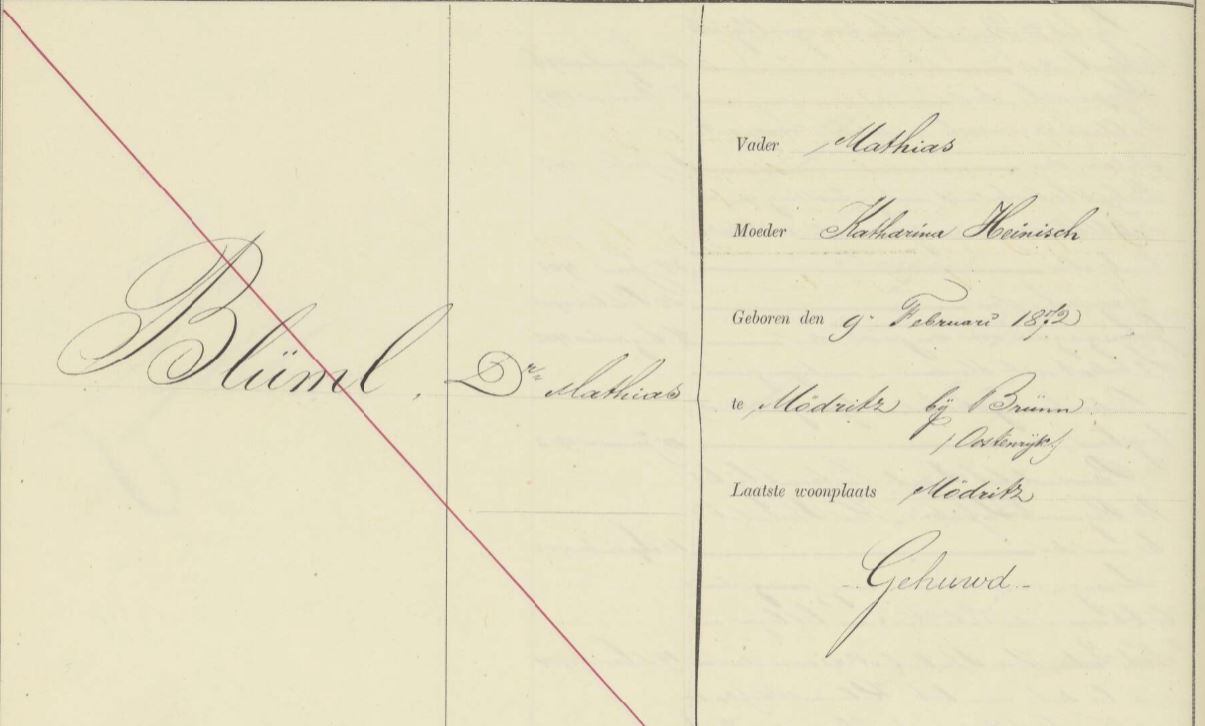 Blüml, Dr. Mathias
Vader Mathias
Moeder Katharina Heinisch
Geboren den 9 Februari 1872
te Mödritz bij Brünn
(Oostenrijk)
Laatste woonplaats Mödritz
- Gehuwd -